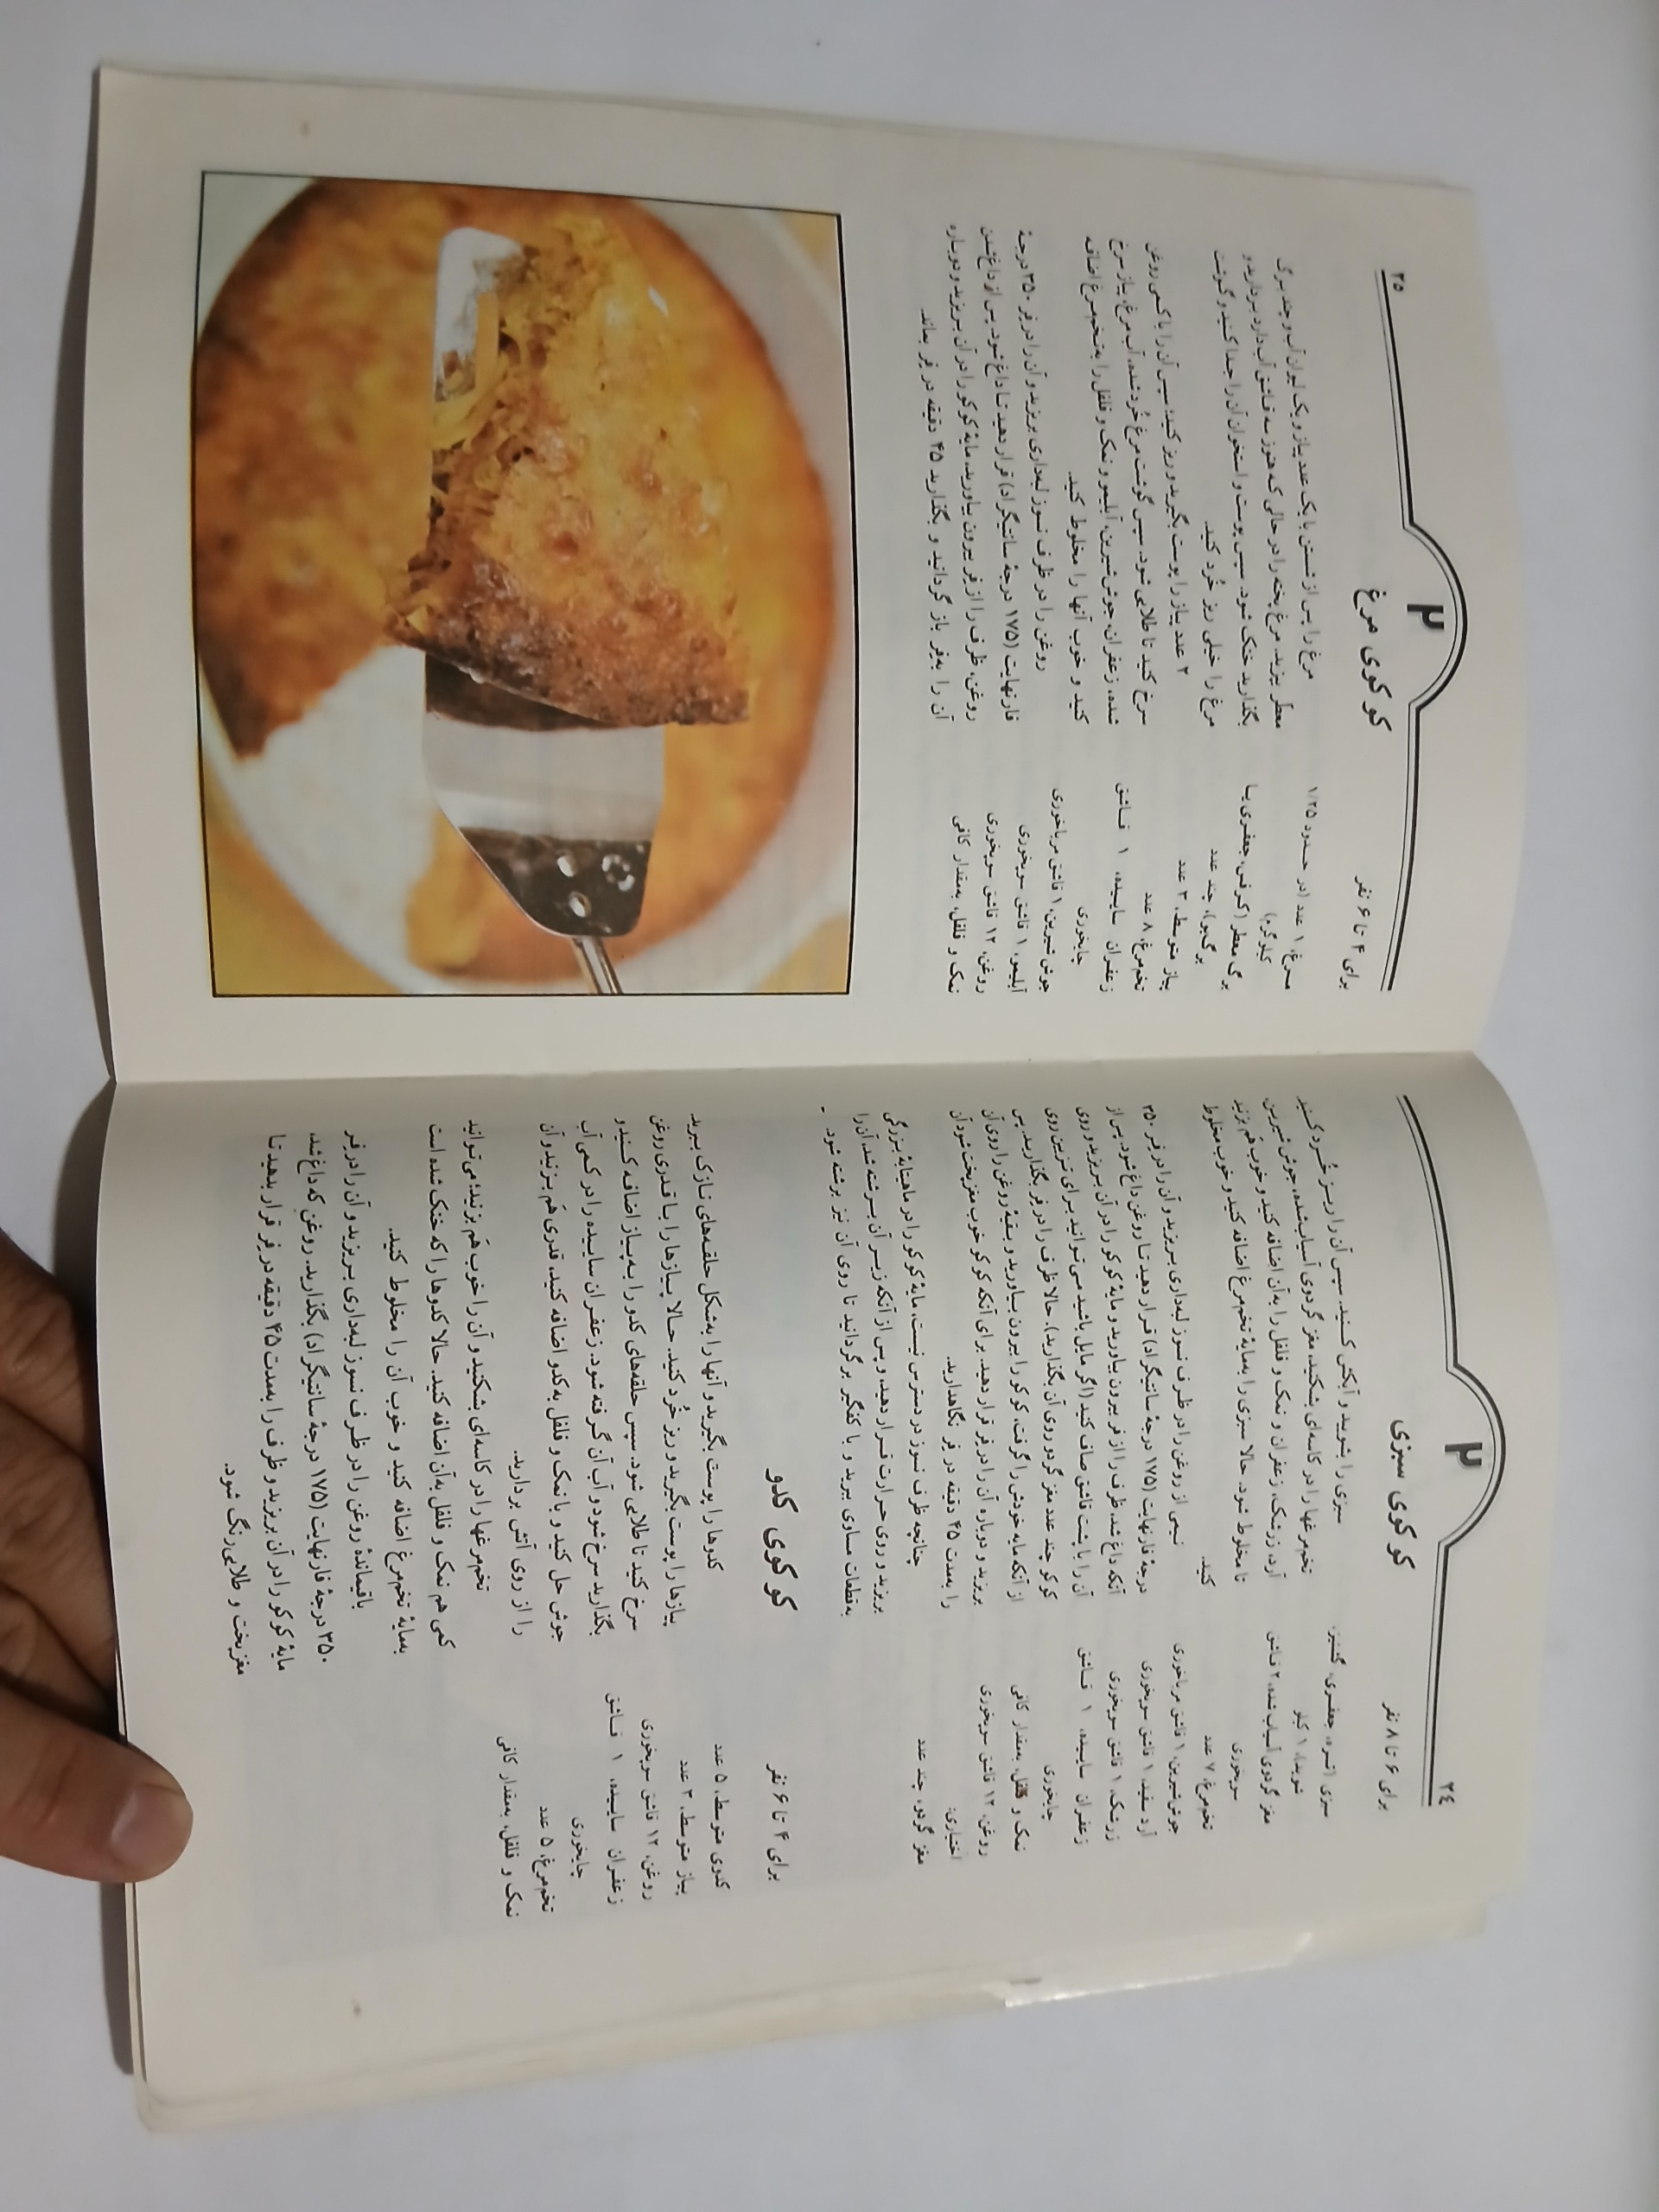 ۲٤
۲
کوکوی سبزی
برای ۶ تا ۸ نفر
سبزی (تره، جعفری، گشنیز،
شوید)، ۱ کیلو
مغز گردوی آسیاب‌شده، ۲ قاشق
سوپخوری
تخم‌مرغ، ۷ عدد
جوش‌شیرین، ۱ قاشق مرباخوری
آرد سفید، ۱ قاشق سوپخوری
زرشک، ۱ قاشق سوپخوری
زعفران ساییده، ۱ قاشق
چایخوری
نمک و فلفل، به‌مقدار کافی
روغن، ۱۲ قاشق سوپخوری
اختیاری:
مغز گردو، چند عدد
سبزی را بشوید و آبکش کنید. سپس آن را ریز خُرد کنید
تخم‌مرغها را در کاسه‌ای بشکنید، مغز گردوی آسیاب‌شده، جوش‌شیرین،
آرد، زرشک، زعفران و نمک و فلفل را به‌آن اضافه کنید و خوب هَم بزنید
تا مخلوط شود. حالا سبزی را به‌مایهٔ تخم‌مرغ اضافه کنید و خوب مخلوط
کنید.
نیمی از روغن را در ظرف نسوز لبه‌داری بریزید و آن را در فر ۳۵۰
درجهٔ فارنهایت (۱۷۵ درجهٔ سانتیگراد) قرار دهید تا روغن داغ شود. پس از
آنکه داغ شد، ظرف را از فر بیرون بیاورید و مایهٔ کوکو را در آن بریزید و روی
آن را با پشت قاشق صاف کنید (اگر مایل باشید می‌توانید برای تزیین روی
کوکو چند عدد مغز گردو روی آن بگذارید). حالا ظرف را در فر بگذارید. پس
از آنکه مایه خودش را گرفت، کوکو را بیرون بیاورید و بقیهٔ روغن را روی آن
بریزید و دوباره آن را در فر قرار دهید. برای آنکه کوکو خوب مغزپخت شود آن
را به‌مدت ۴۵ دقیقه در فر نگاهدارید.
چنانچه ظرف نسوز در دسترس نیست، مایهٔ کوکو را در ماهیتابهٔ بزرگی
بریزید و روی حرارت قرار دهید، و پس از آنکه زیر آن برشته شد، آن را
به‌قطعات مساوی ببرید و با کفگیر برگردانید تا روی آن نیز برشته شود.
کوکوی کدو
برای ۴ تا ۶ نفر
کدوی متوسط، ۵ عدد
پیاز متوسط، ۳ عدد
روغن، ۱۲ قاشق سوپخوری
زعفران ساییده، ۱ قاشق
چایخوری
تخم‌مرغ، ۵ عدد
نمک و فلفل، به‌مقدار کافی
کدوها را پوست بگیرید و آنها را به‌شکل حلقه‌های نازک ببرید.
پیازها را پوست بگیرید و ریز خُرد کنید. حالا پیازها را با قدری روغن
سرخ کنید تا طلایی شود. سپس حلقه‌های کدو را به‌پیاز اضافه کنید و
بگذارید سرخ شود و آب آن گرفته شود. زعفران ساییده را در کمی آب
جوش حل کنید و با نمک و فلفل به‌کدو اضافه کنید، قدری هَم بزنید و آن
را از روی آتش بردارید.
تخم‌مرغها را در کاسه‌ای بشکنید و آن را خوب هَم بزنید؛ می‌توانید
کمی هم نمک و فلفل به‌آن اضافه کنید. حالا کدوها را که خنک شده است
به‌مایهٔ تخم‌مرغ اضافه کنید و خوب آن را مخلوط کنید.
باقیماندهٔ روغن را در ظرف نسوز لبه‌داری بریزید و آن را در فر
۳۵۰ درجهٔ فارنهایت (۱۷۵ درجهٔ سانتیگراد) بگذارید. روغن که داغ شد،
مایهٔ کوکو را در آن بریزید و ظرف را به‌مدت ۴۵ دقیقه در فر قرار بدهید تا
مغزپخت و طلایی‌رنگ شود.
۲۵
۲
کوکوی مرغ
برای ۴ تا ۶ نفر
مرغ، ۱ عدد (در حدود ۱/۲۵
کیلوگرم)
برگ معطر (کرفس، جعفری یا
برگ‌بو)، چند عدد
پیاز متوسط، ۳ عدد
تخم‌مرغ، ۸ عدد
زعفران ساییده، ۱ قاشق
چایخوری
جوش شیرین، ۱ قاشق مرباخوری
آبلیمو، ۱ قاشق سوپخوری
روغن، ۱۲ قاشق سوپخوری
نمک و فلفل، به‌مقدار کافی
مرغ را پس از شستن با یک عدد پیاز و یک لیوان آب و چند برگ
معطر بپزید. مرغ پخته را در حالی که هنوز سه قاشق آب دارد بردارید و
بگذارید خنک شود. سپس پوست و استخوان آن را جدا کنید و گوشت
مرغ را خیلی ریز خُرد کنید.
۲ عدد پیاز را پوست بگیرید و ریز کنید؛ سپس آن را با کمی روغن
سرخ کنید تا طلایی شود. سپس گوشت مرغ خُرد شده، آب مرغ، پیاز سرخ
شده، زعفران، جوش‌شیرین، آبلیمو و نمک و فلفل را به‌تخم‌مرغ اضافه
کنید و خوب آنها را مخلوط کنید.
روغن را در ظرف نسوز لبه‌داری بریزید و آن را در فر ۳۵۰ درجهٔ
فارنهایت (۱۷۵ درجهٔ سانتیگراد) قرار دهید تا داغ شود. پس از داغ‌شدن
روغن، ظرف را از فر بیرون بیاورید، مایهٔ کوکو را در آن بریزید و دوباره
آن را به‌فر باز گردانید و بگذارید ۴۵ دقیقه در فر بماند.